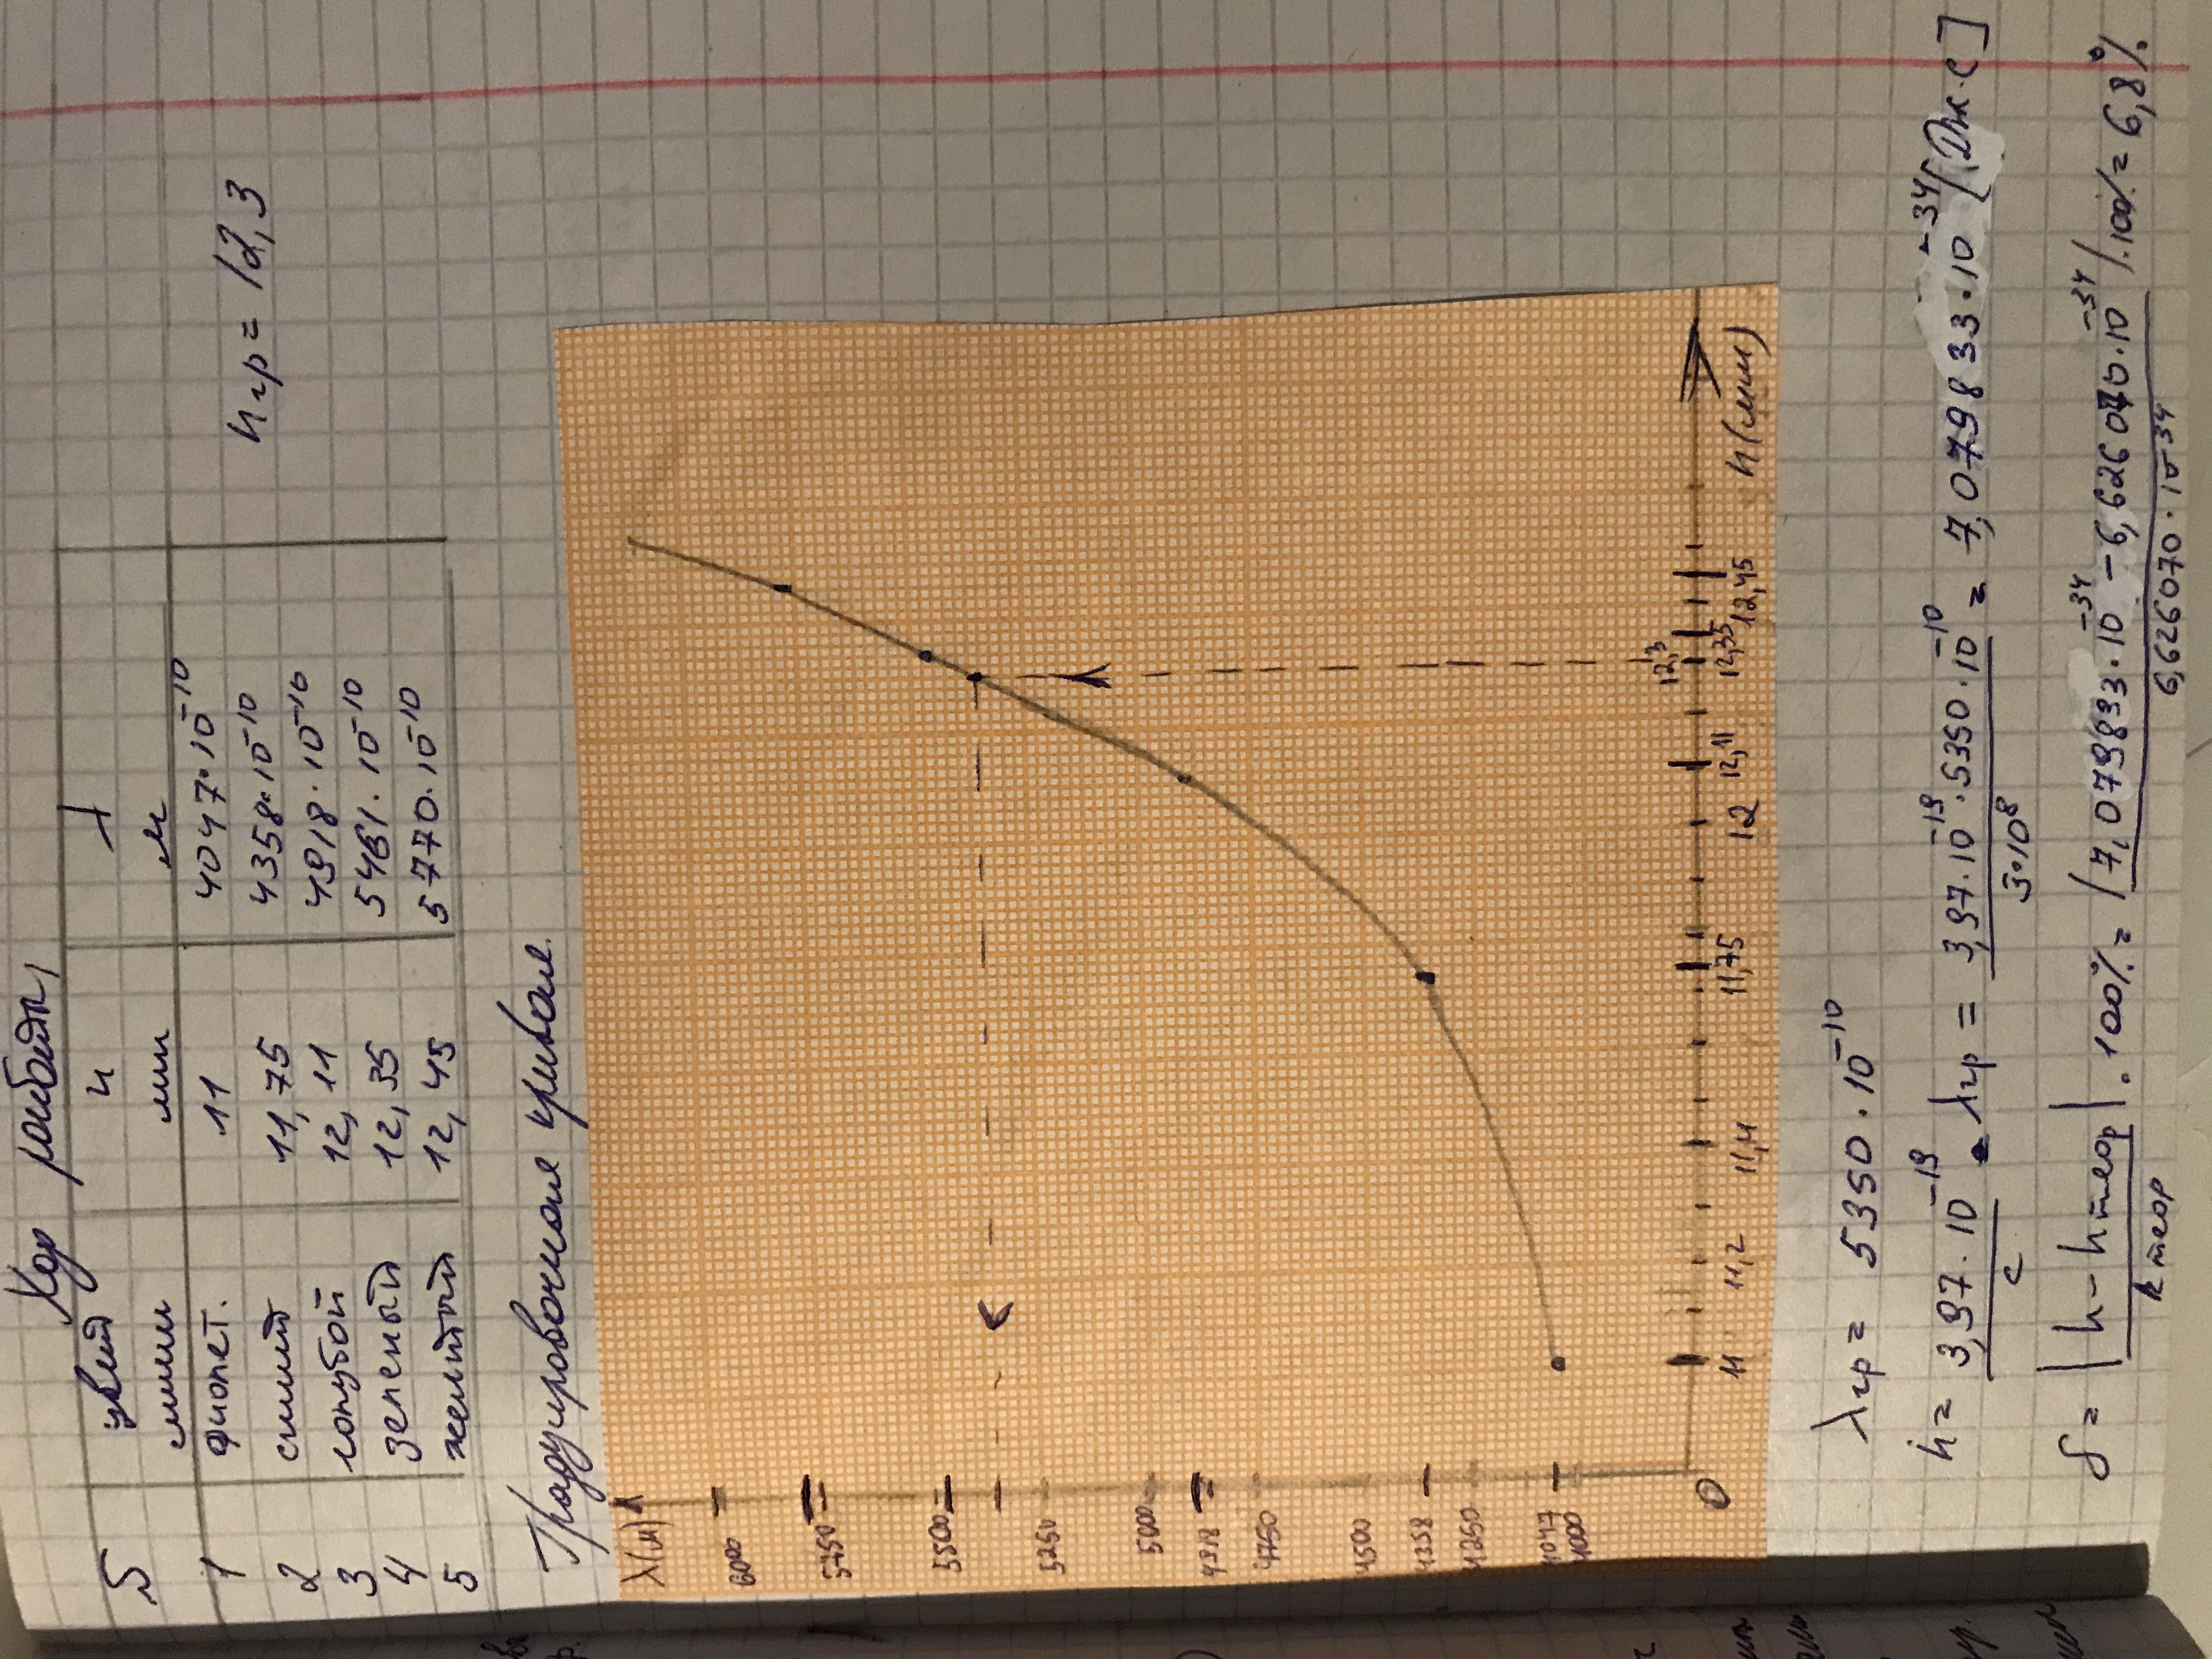 Ход работы
№ цвет n λ
линии мм м
1 фиолет. 11 4047·10⁻¹⁰
2 синий 11,75 4358·10⁻¹⁰
3 голубой 12,11 4918·10⁻¹⁰
4 зеленый 12,35 5461·10⁻¹⁰
5 желтый 12,45 5770·10⁻¹⁰
nгр = 12,3
Градуировочная кривая.
λ(м)
6000
5750
5500
5250
5000
4918
4750
4500
4358
4250
4047
4000
12,3
0 11 11,2 11,4 11,75 12 12,11 12,35 12,45 n(мм)
λгр = 5350·10⁻¹⁰
h = 3,97·10⁻¹⁹/c · λгр = 3,97·10⁻¹⁹·5350·10⁻¹⁰/3·10⁸ = 7,079833·10⁻³⁴ [Дж·с]
δ = |h − hтеор|/hтеор · 100% = |7,079833·10⁻³⁴ − 6,626070·10⁻³⁴|/6,626070·10⁻³⁴ · 100% = 6,8%